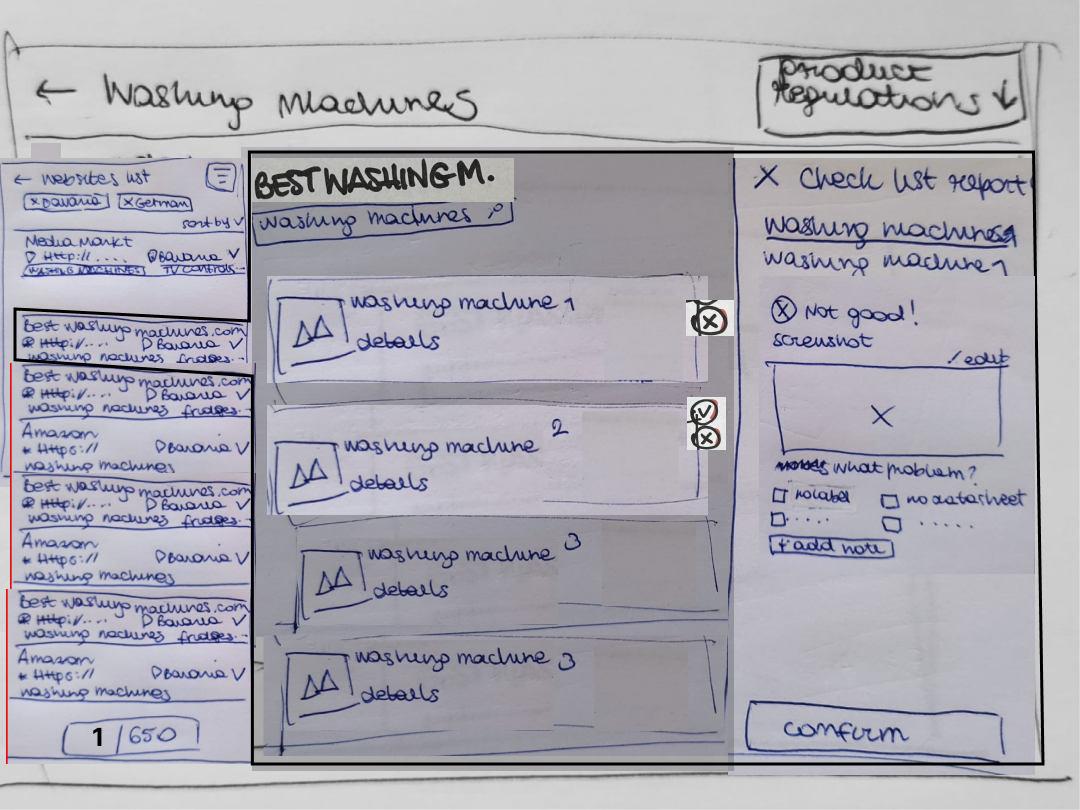 ← Washing Machines
product
regulations ↓
← websites list
x Bavaria x German
sort by
Media Markt
Http://.... Bavaria
WASHING MACHINES TV CONTROLS...
Best washing machines.com
Http://.... Bavaria
washing machines fridges...
Best washing machines.com
Http://.... Bavaria
washing machines fridges...
Amazon
Https:// Bavaria
washing machines
Best washing machines.com
Http://.... Bavaria
washing machines fridges...
Amazon
Https:// Bavaria
washing machines
Best washing machines.com
Http://.... Bavaria
washing machines fridges...
Amazon
Https:// Bavaria
washing machines
1 /650
BEST WASHING M.
washing machines
washing machine 1
details
washing machine 2
details
washing machine 3
details
washing machine 3
details
X Check list report
washing machines
washing machine 1
Not good!
screnshot
edit
what problem?
no label no datasheet
..... .....
+ add note
confirm